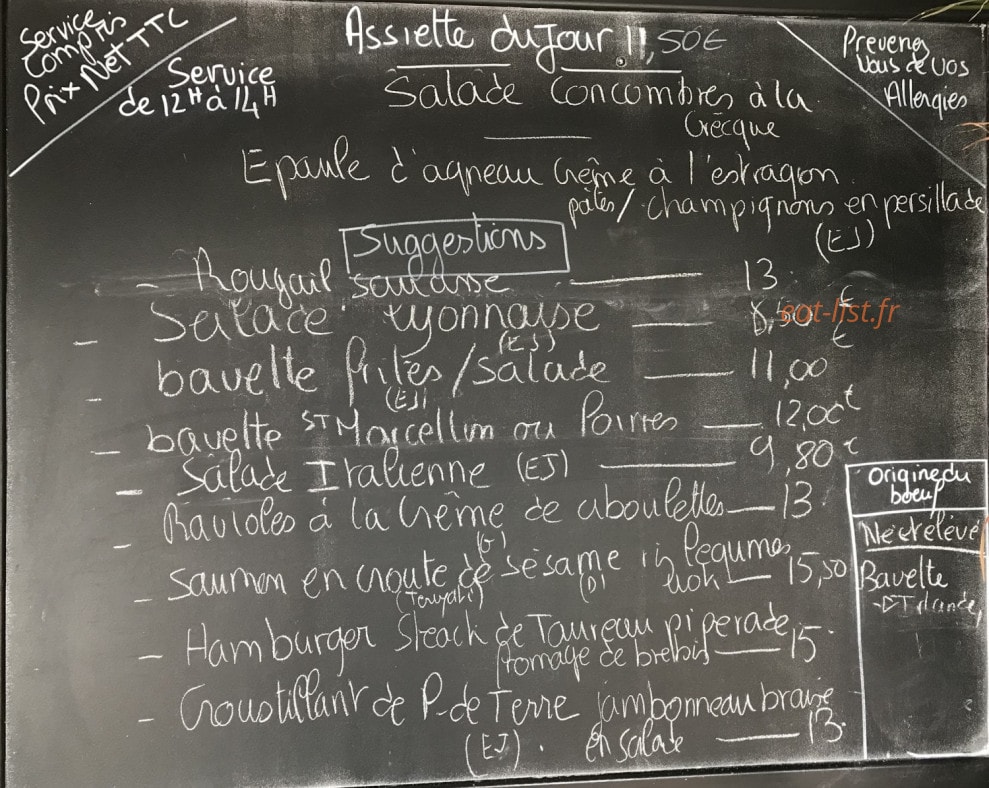 Service
Compris
Prix Net TTC
Service
de 12H à 14H
Assiette du Jour 11,50€
Prevenez
Nous de vos
Allergies
Salade Concombres à la
Grècque
Epaule d'agneau Crême à l'estragon
pâtes / champignons en persillade
(EJ)
Suggestions
- Rougail saucisse — 13.€
- Salade Lyonnaise — 8,50 €
(EJ)
eat-list.fr
- bavette frites/salade — 11,00
(EJ)
- bavette ST Marcellin ou Poivres — 12,00€
- Salade Italienne (EJ) — 9,80€
- Ravioles à la Crême de ciboulettes — 13.
(G)
- Saumon en croute de sésame légumes
(Teriyaki) (D) wok — 15,50
- Hamburger Steack de Taureau piperade
fromage de brebis — 15
- Croustillant de P. de Terre jambonneau braisé
(EJ). en salade — 13.
Origine du
boeuf
Né et elévé
Bavette
-▷ Irlande